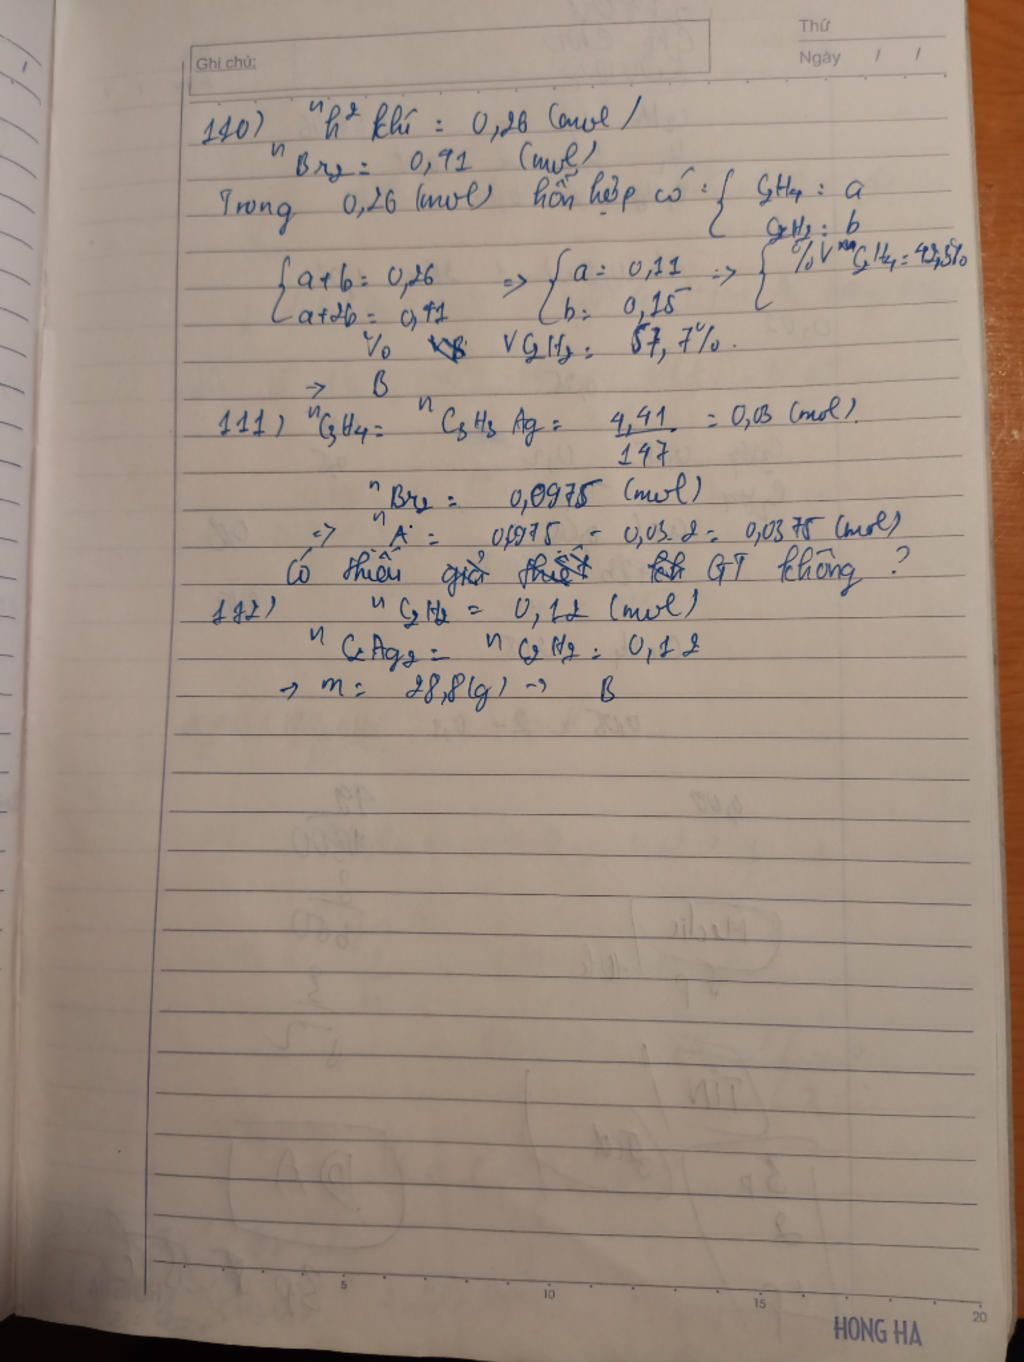 Thứ
Ghi chú:
Ngày / /
110) n h² khí = 0,26 (mol)
nBr₂ = 0,41 (mol)
Trong 0,26 (mol) hỗn hợp có : { C₂H₄ : a
C₂H₂ : b
{ a+b = 0,26 => { a = 0,11 => { %V C₂H₄ = 42,3%
a+2b = 0,41 b = 0,15
% V C₂H₂ = 57,7%.
-> B
111) nC₃H₄ = nC₃H₃Ag = 4,41/147 = 0,03 (mol).
nBr₂ = 0,0975 (mol)
=> nA = 0,0975 - 0,03.2 = 0,0375 (mol)
Có thiếu giả thiết GT không ?
112) nC₂H₂ = 0,12 (mol)
nC₂Ag₂ = nC₂H₂ = 0,12
-> m = 28,8 (g) -> B
5 10 15 20
HONG HA